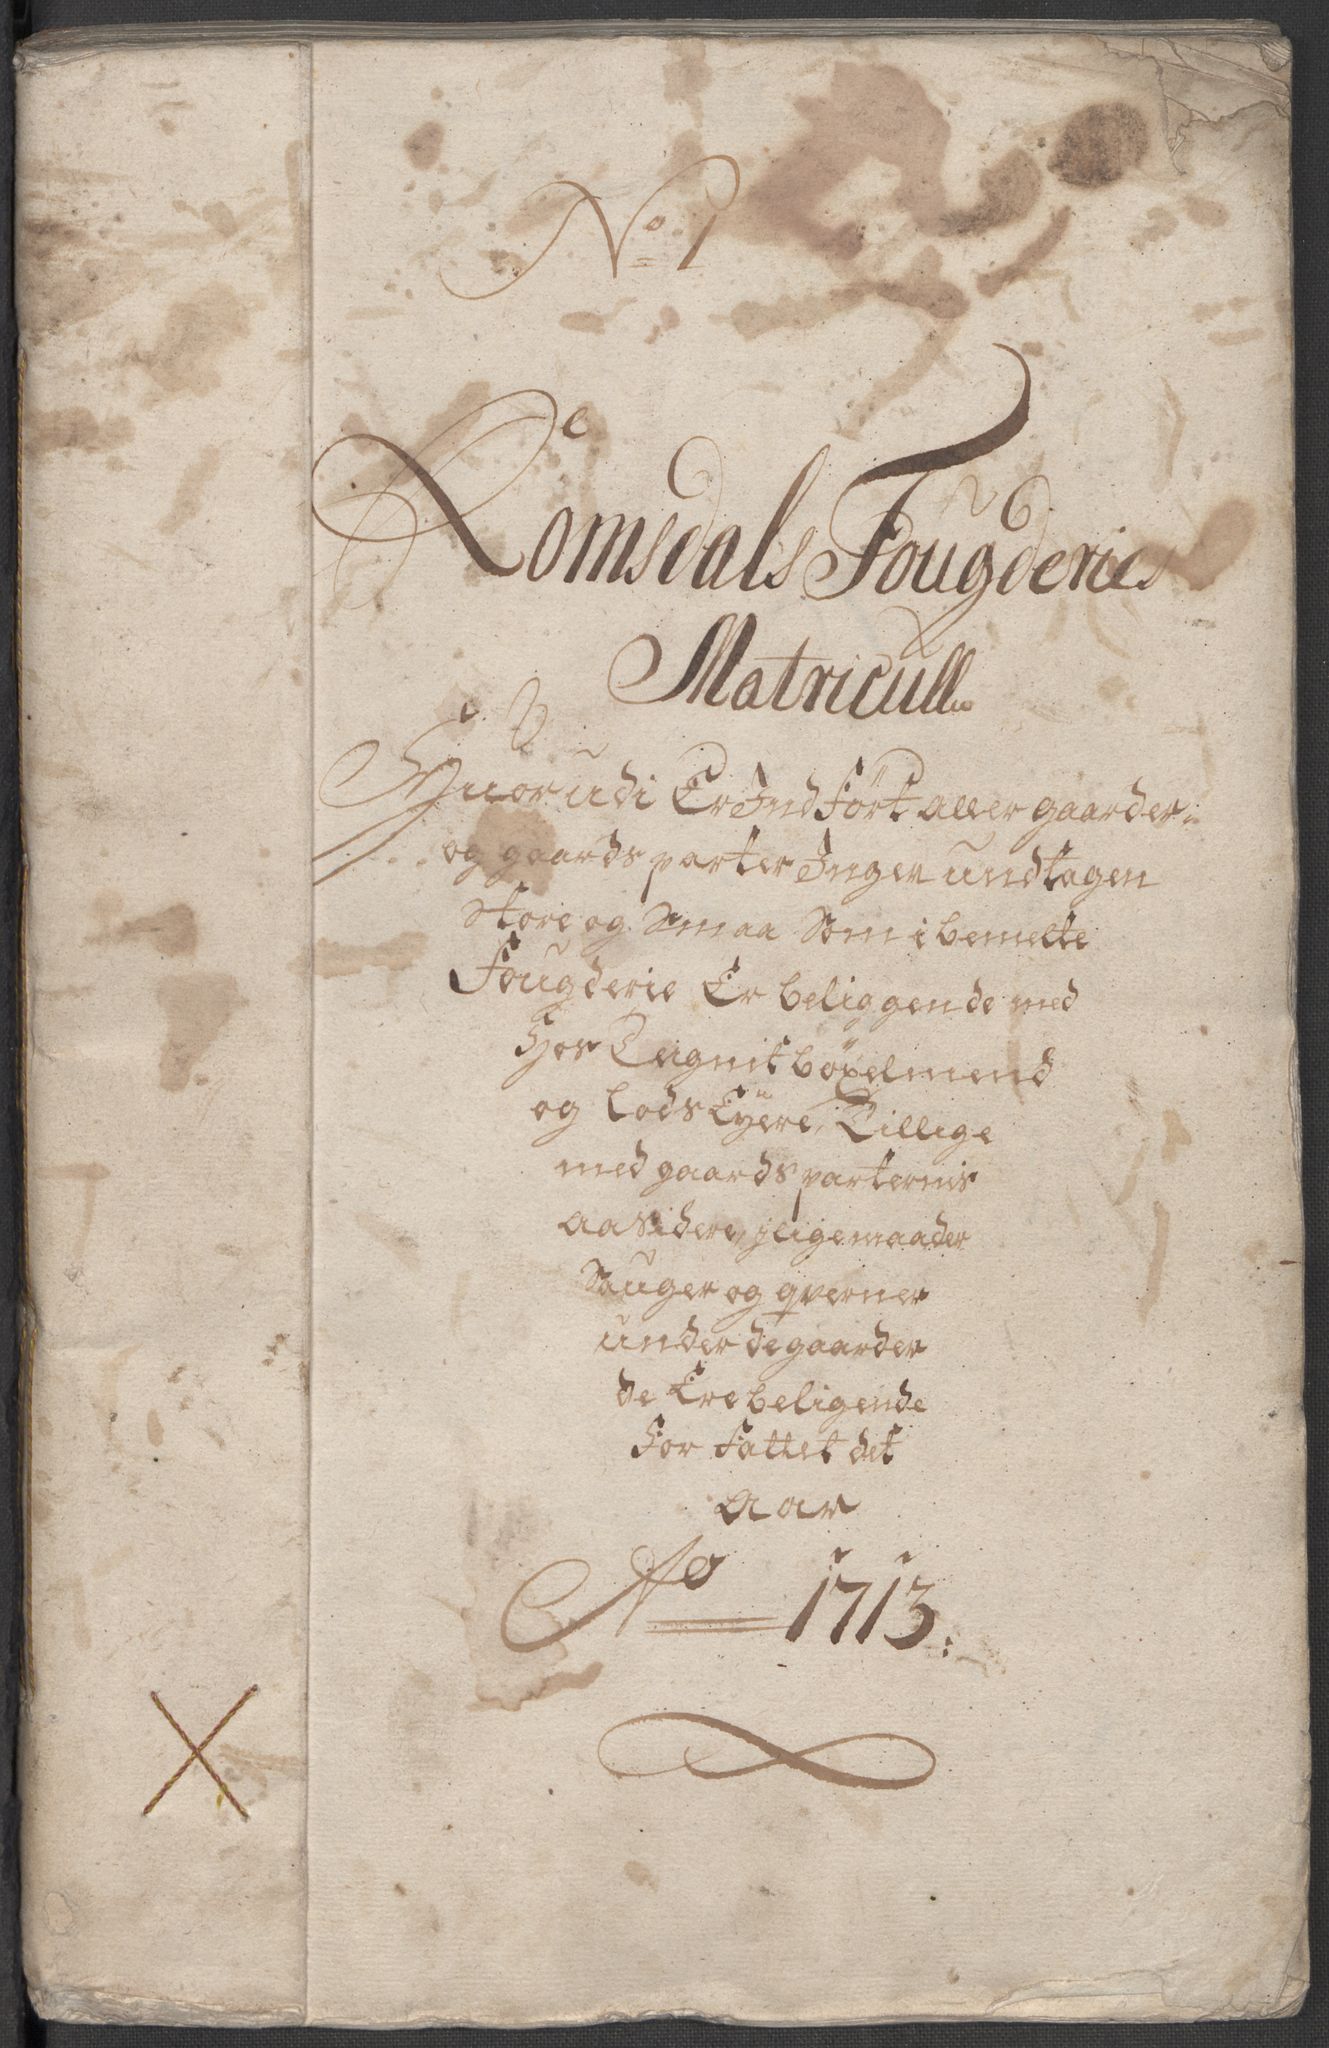 No 1
Romsdals Fougderies
Matricull
Huorudi Er Indført aller gaarder
og gaards parter Ingen undtagen
store og Smaa Som i bemelte
Fougderie Er beliggende med
Hos Tegnit böxelmend
og Lods Eÿere, Tillige
med gaards parternis
aasidere, jligemaader
Sauger og qverner
under de gaarder
de Ere beligende
For Fattet det
Aar
Ao 1713: